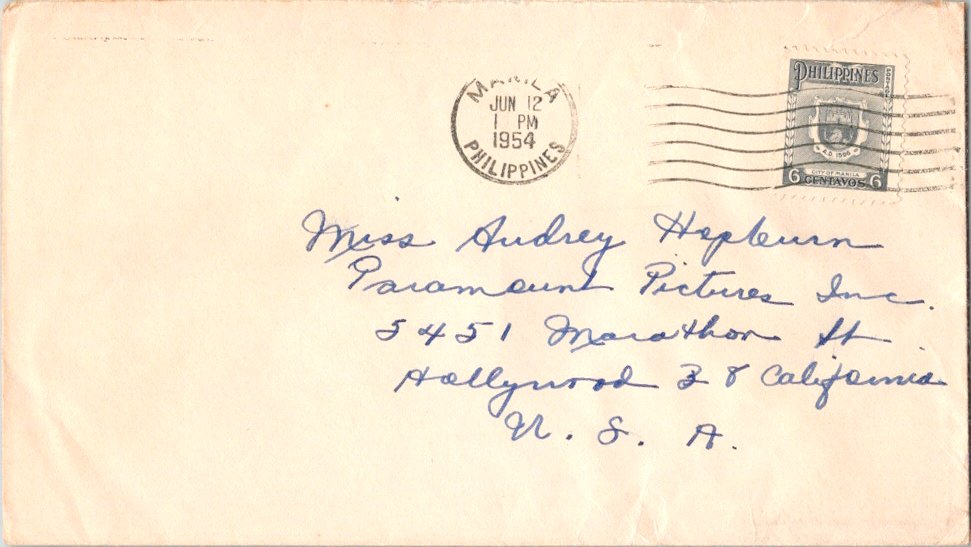 MANILA
JUN 12
1 PM
1954
PHILIPPINES
PHILIPPINES
A.D. 1596
CITY OF MANILA
6 CENTAVOS 6
Miss Audrey Hepburn
Paramount Pictures Inc.
5451 Marathon St.
Hollywood 38 California
U. S. A.